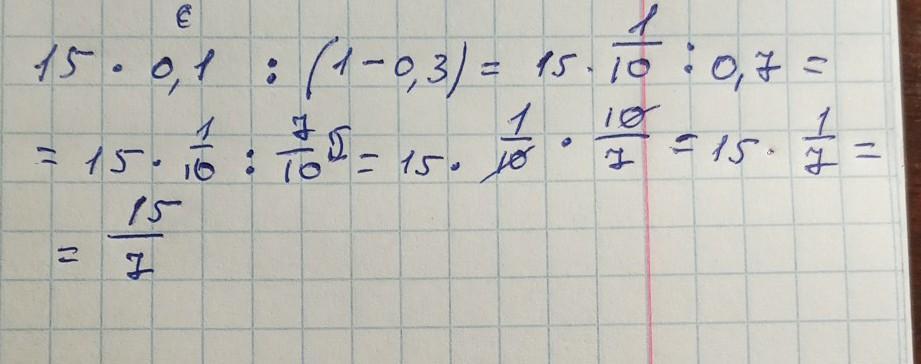 15 · 0,1 : (1 - 0,3) = 15 · 1/10 : 0,7 =
= 15 · 1/10 : 7/10 = 15 · 1/10 · 10/7 = 15 · 1/7 =
= 15/7